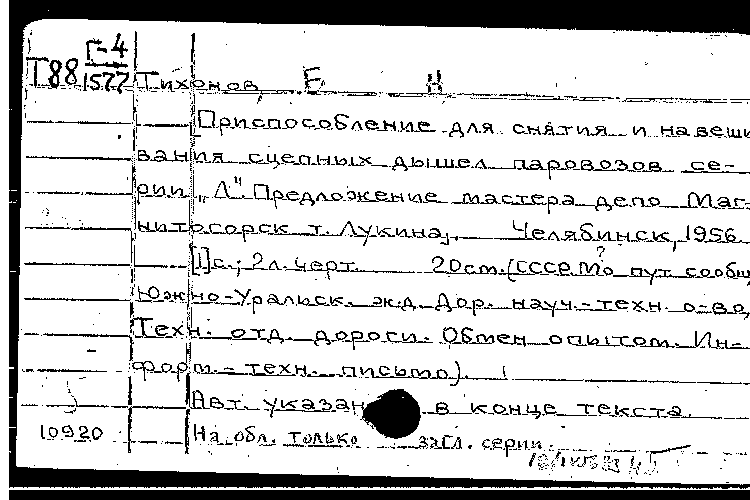 Г-4
Т88 1577 Тихонов, Е Н
Приспособление для снятия и навеши
вания сцепных дышел паровозов се-
рии "Л". Предложение мастера депо Маг-
нитогорск т. Лукина]. Челябинск, 1956.
[1]с.; 2л. черт. 20см. (СССР. М?о пут сообщ
Южно-Уральск. ж.д. Дор. науч.-техн. о-во,
Техн. отд. дороги. Обмен опытом. Ин-
форм.-техн. письмо).
Авт. указан в конце текста.
10920 На обл. только загл. серии.